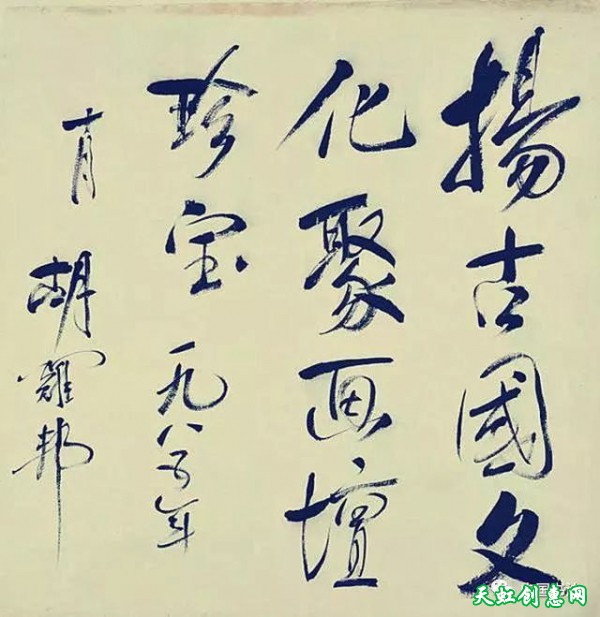 揚古國文
化聚画壇
珍宝 一九八五年
十月 胡耀邦
天虹创惠网